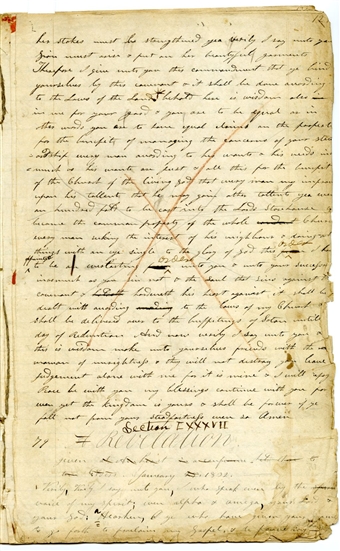 12
her stakes must be strengthened yea verily I say unto you
Zion must arise & put on her beautiful garments
Therefore I give unto you this commandment that ye bind
yourselves by this covenant & it shall be done according
to the Laws of the Land behold here is wisdom also
in me for your good & you are to be equal or in
other words you are to have equal claims on the properties
for the benefit of managing the concerns of your
every man according to his wants & his needs in
much as his wants are just & all this for the benefit
of the Church of the living God that every man may improve
upon his talents that he may gain other talents yea
an hundred fold to be cast into the Lords Storehouse to
become the common property of the whole Church
every man seeking the interest of his neighbour & doing all
things with an eye single to the glory of God this order
to be an everlasting order unto you & unto your successors
inasmuch as you sin not & the soul that sins against this
covenant & hardeneth his heart against it shall be
dealt with according to the laws of my Church &
shall be delivered over to the buffetings of Satan until the
day of Redemption And now verily I say unto you &
this is wisdom make unto yourselves friends with the
mammon of unrighteousness & they will not destroy you leave
judgement alone with me for it is mine & I will repay
Peace be with you my blessings continue with you for
even yet the kingdom is yours & shall be forever if ye
fall not from your steadfastness even so Amen
Section LXXXVII
79 Revelation
given
to January 1832
Verily Verily I say unto you I who speak even by the
voice of my Spirit even alpha & omega your Lord &
your God hearken O ye who have given your names
to go forth to proclaim my Gospel &